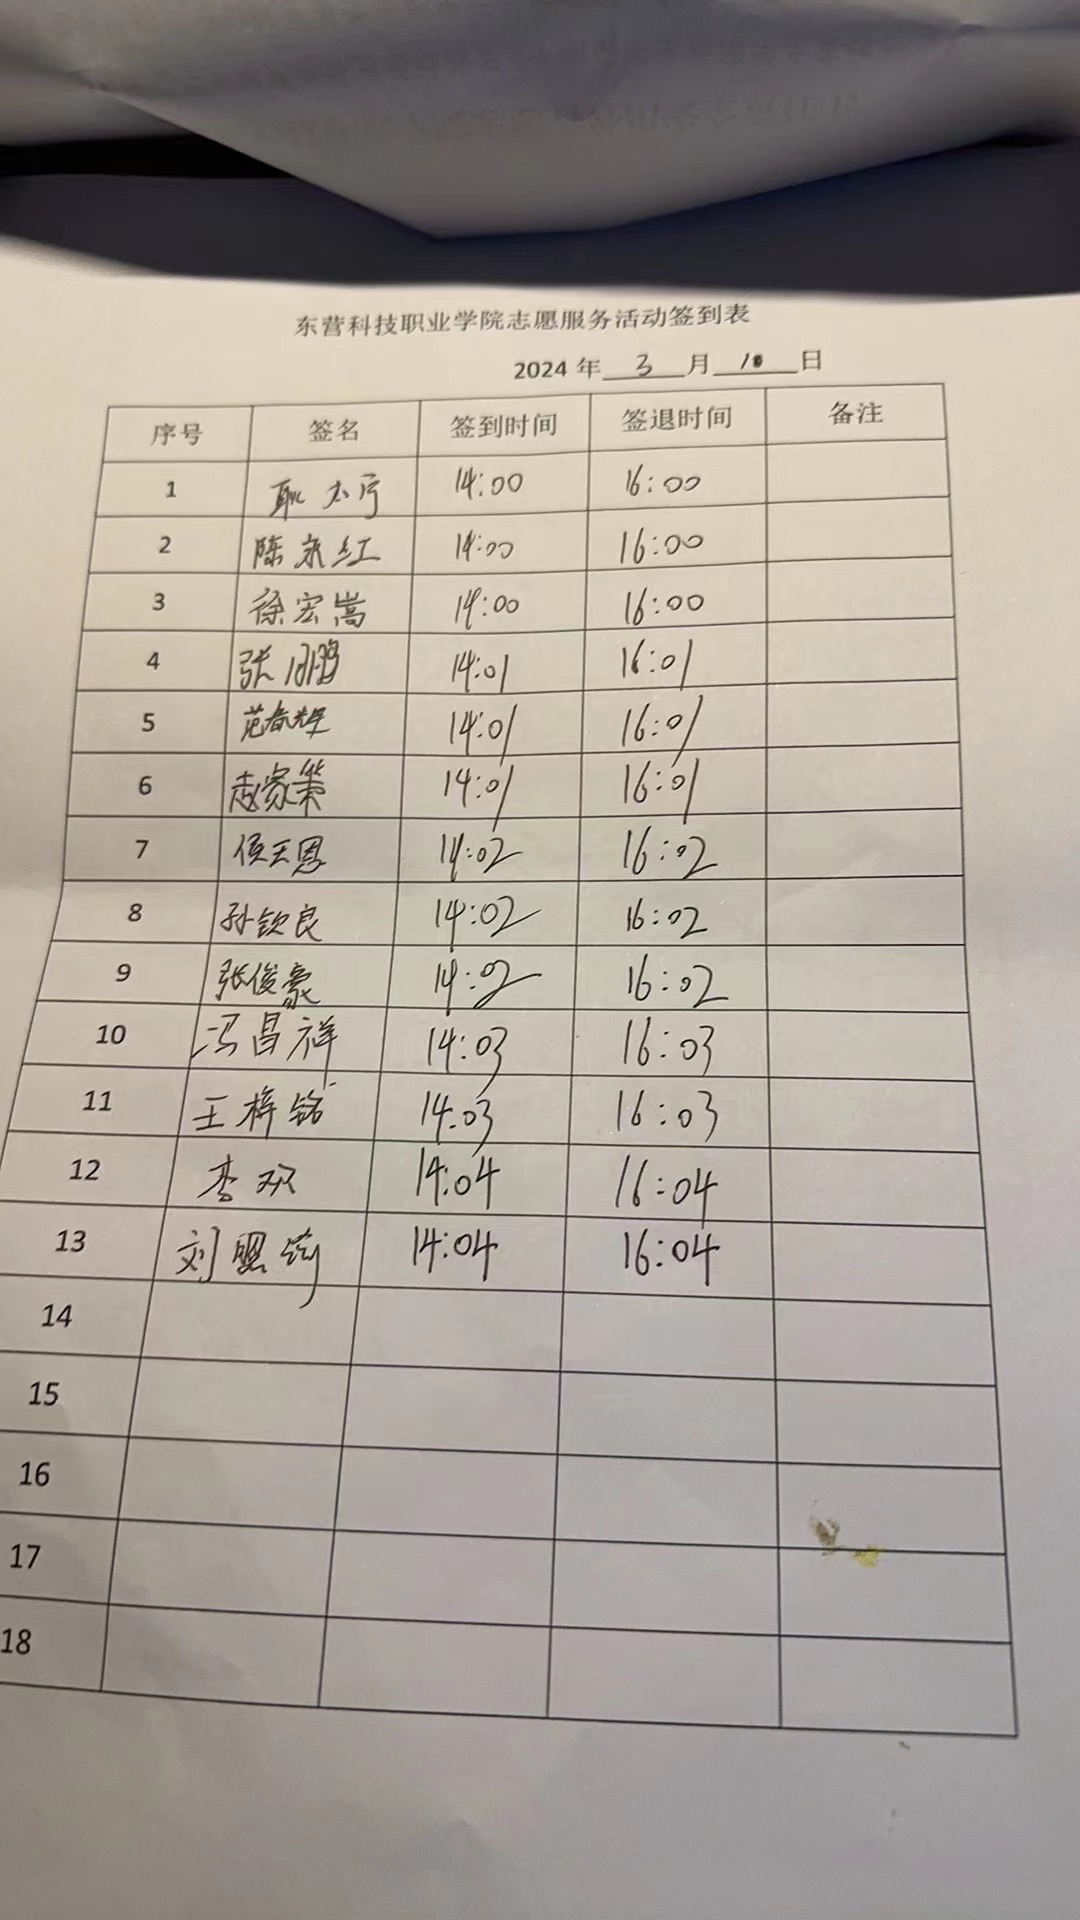 东营科技职业学院志愿服务活动签到表
2024 年 3 月 10 日
序号 签名 签到时间 签退时间 备注
1 耿 14:00 16:00
2 陈永红 14:00 16:00
3 徐宏嵩 14:00 16:00
4 张 鹏 14:01 16:01
5 范春辉 14:01 16:01
6 赵家策 14:01 16:01
7 侯天恩 14:02 16:02
8 孙钦良 14:02 16:02
9 张俊豪 14:02 16:02
10 冯昌祥 14:03 16:03
11 王梓铭 14:03 16:03
12 李双 14:04 16:04
13 刘 14:04 16:04
14
15
16
17
18